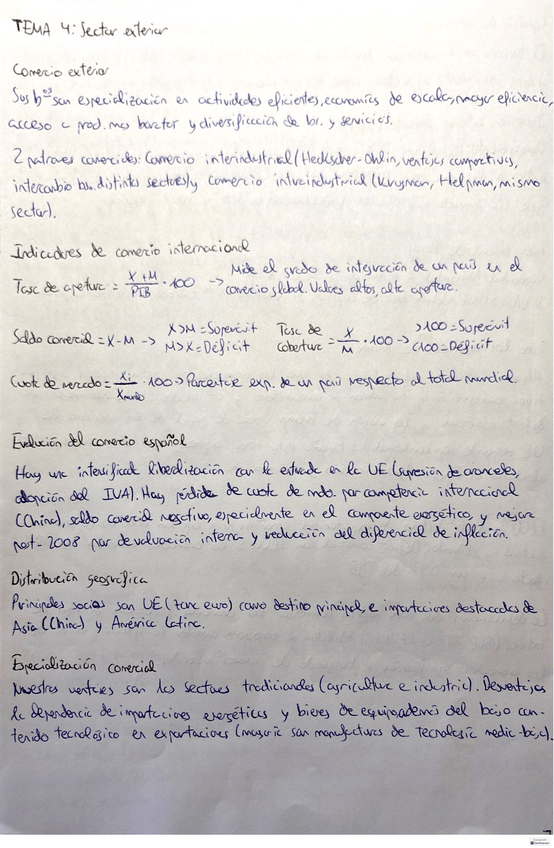 TEMA 4: Sector exterior
Comercio exterior
Sus b^os son especialización en actividades eficientes, economías de escala, mayor eficiencia,
acceso a prod. mas baratos y diversificación de bs. y servicios.
2 patrones comerciales: Comercio interindustrial (Heckscher-Ohlin, ventajas comparativas,
intercambio bs. distintos sectores) y comercio intraindustrial (Krugman, Helpman, mismo
sector).
Indicadores de comercio internacional
Tasa de apertura = X+M / PIB · 100 -> Mide el grado de integración de un país en el
comercio global. Valores altos, alta apertura.
Saldo comercial = X-M -> X>M = Superávit M>X = Déficit Tasa de cobertura = X / M · 100 -> >100 = Superávit <100 = Déficit
Cuota de mercado = Xi / Xmundo · 100 -> Porcentaje exp. de un país respecto al total mundial.
Evolución del comercio español
Hay una intensificada liberalización con la entrada en la UE (supresión de aranceles,
adopción del IVA). Hay pérdida de cuota de mdo. por competencia internacional
(China), saldo comercial negativo, especialmente en el componente energético, y mejora
post-2008 por devaluación interna y reducción del diferencial de inflación.
Distribución geográfica
Principales socios son UE (zona euro) como destino principal, e importaciones destacadas de
Asia (China) y América Latina.
Especialización comercial
Nuestras ventajas son los sectores tradicionales (agricultura e industria). Desventajas
la dependencia de importaciones energéticas y bienes de equipo, además del bajo con-
tenido tecnológico en exportaciones (mayoría son manufacturas de tecnología media-baja).